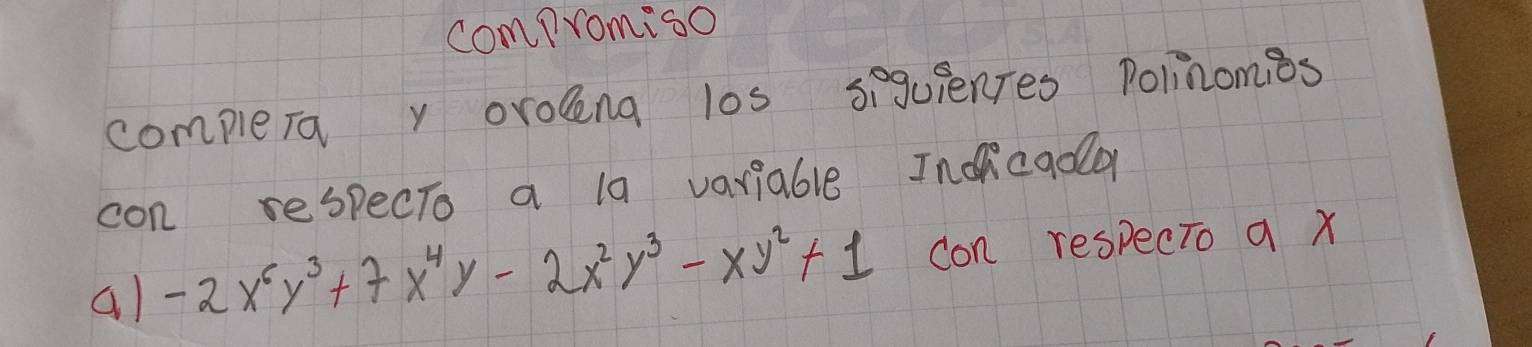 compromiso
completa y ordena los siguientes Polinomios
con respecto a la variable Indicada
a) -2x⁶y³ + 7x⁴y - 2x²y³ - xy² + 1 con respecto a x